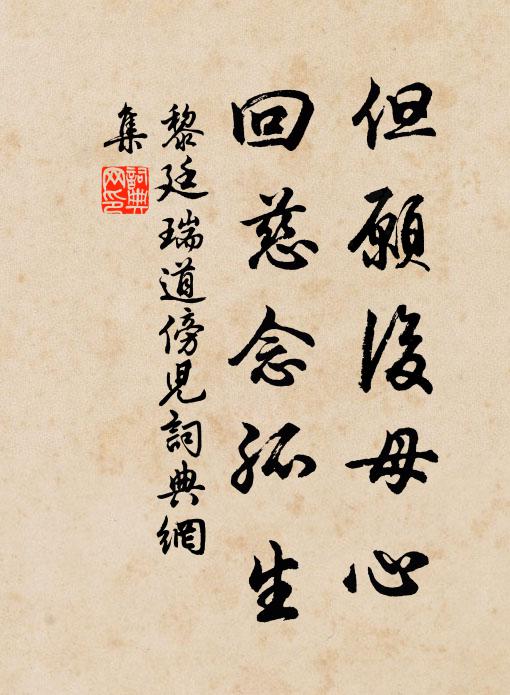 但願後母心
回慈念孤生
黎廷瑞道傍兒詞典網
集
詞典網印